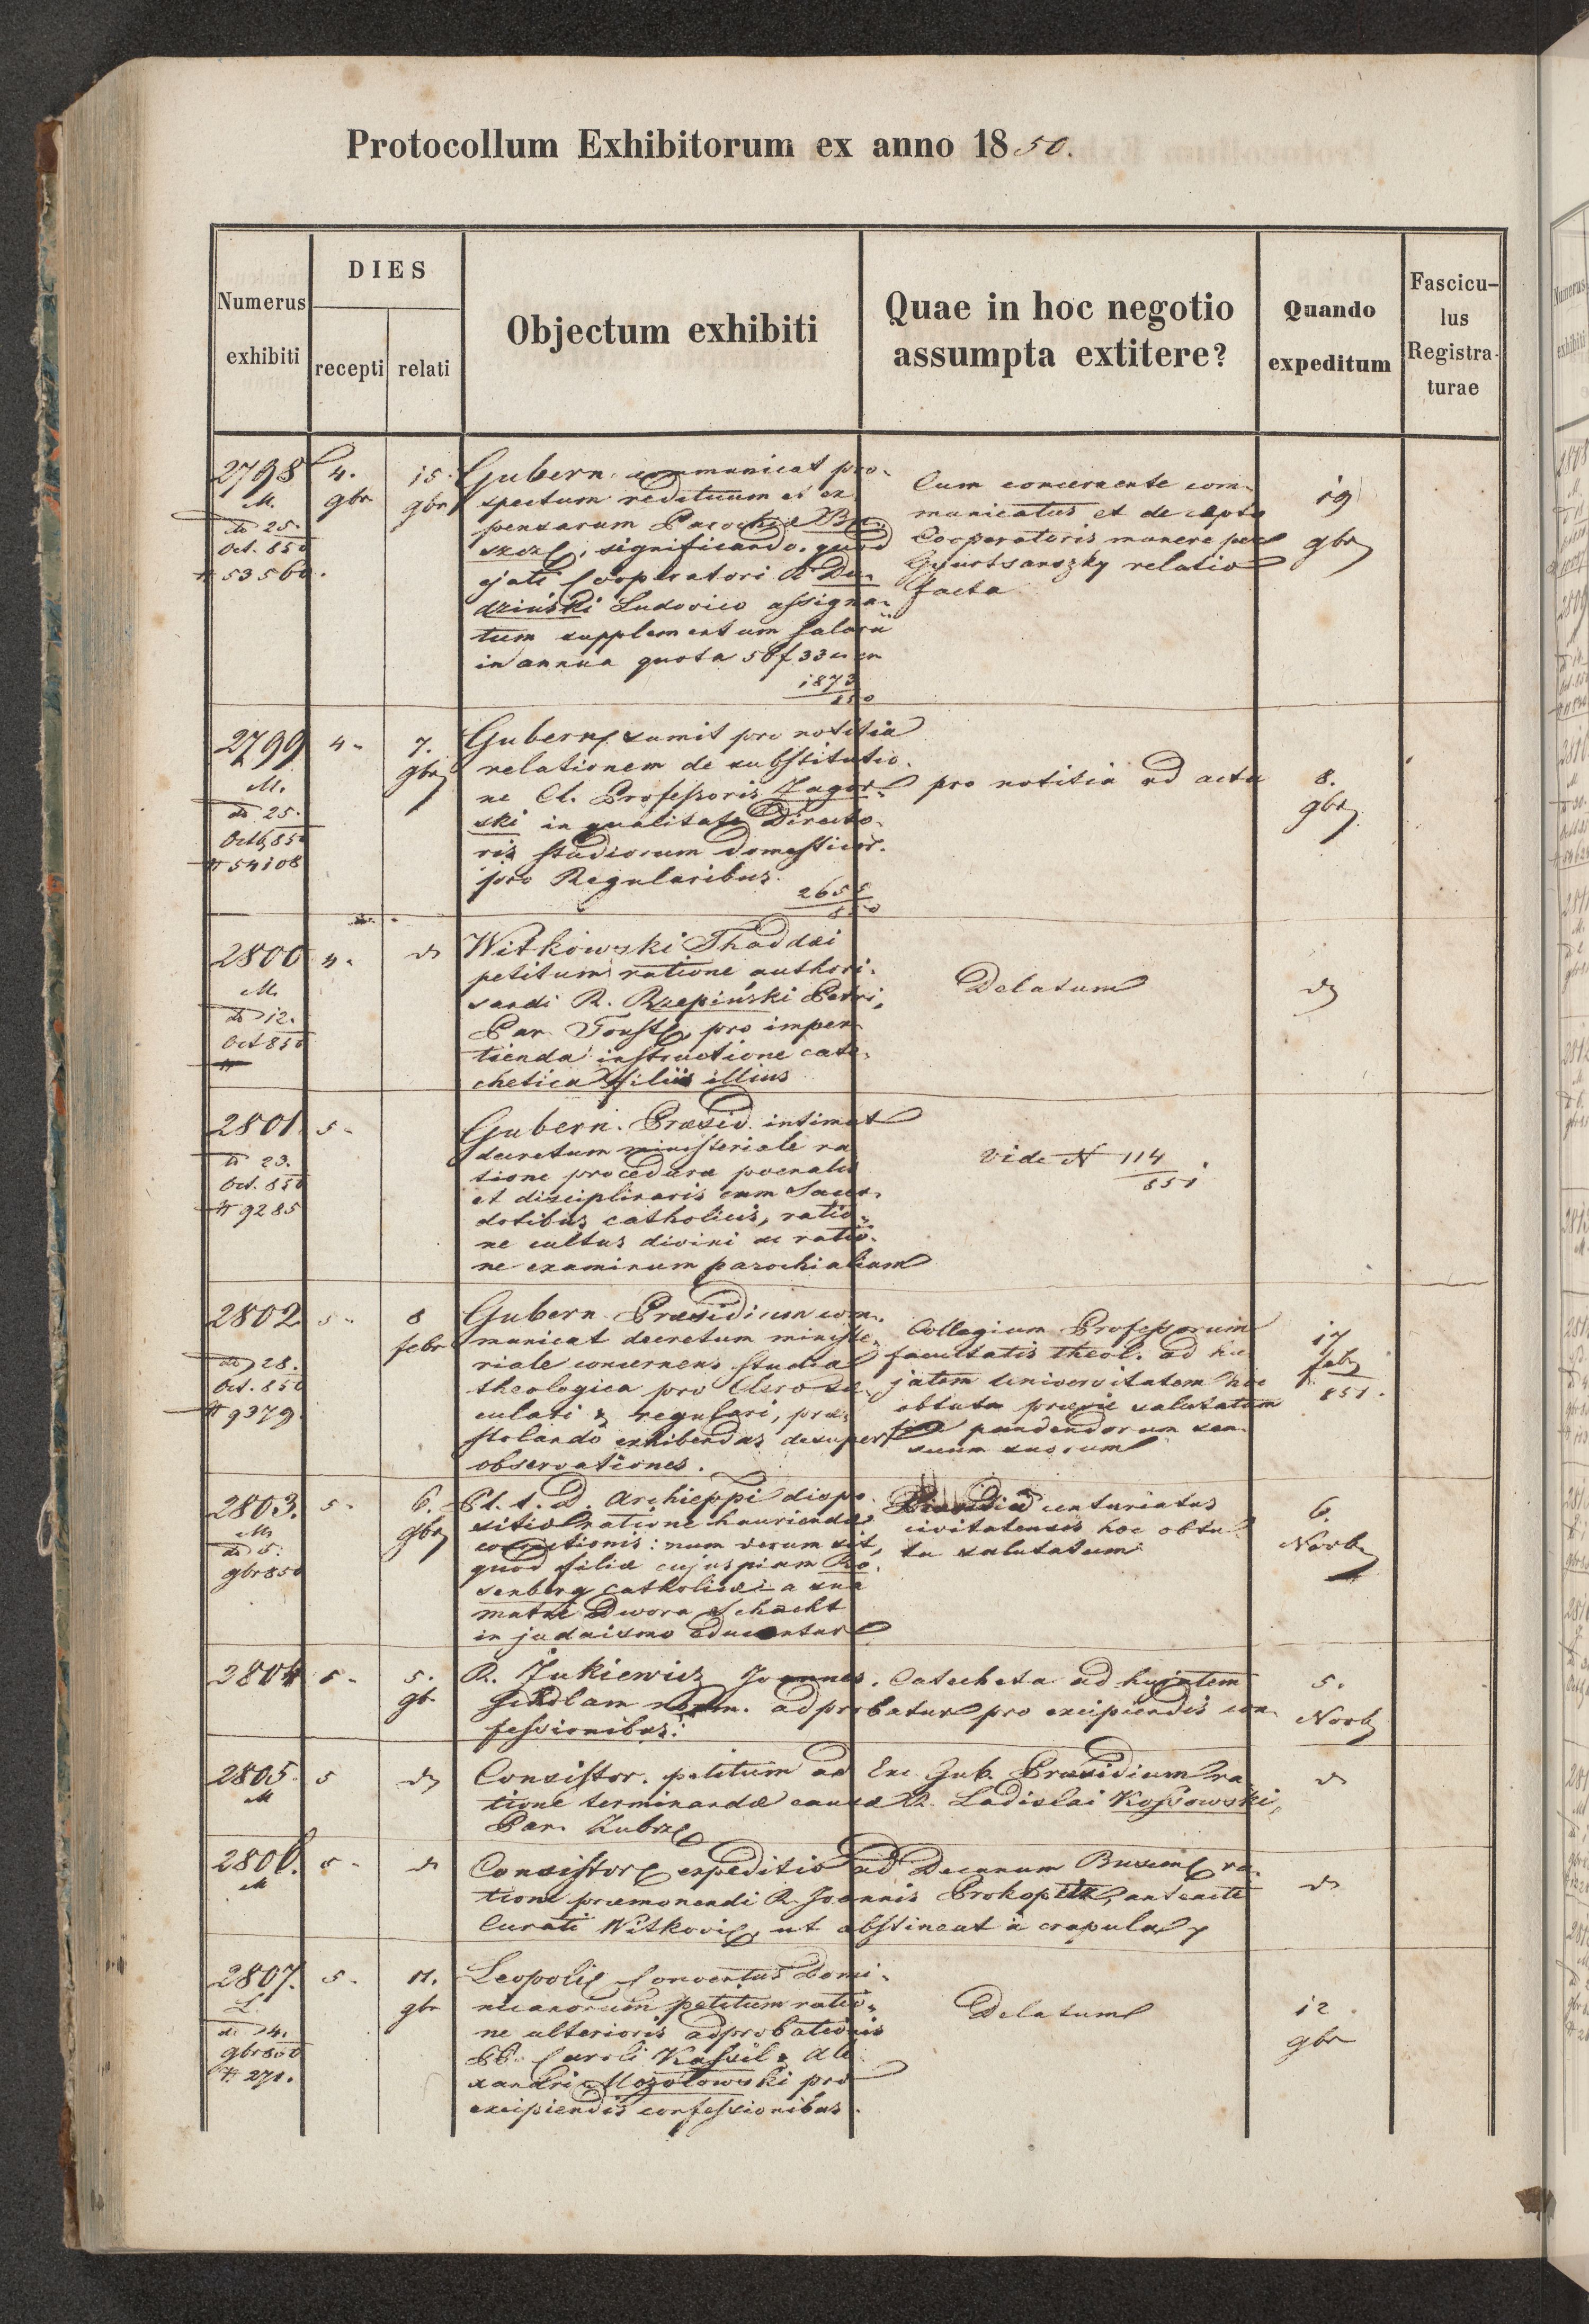 Protocollum Exhibitorum ex anno 1850.
Numerus exhibiti
DIES
recepti
relati
Objectum exhibiti
Quae in hoc negotio
assumpta extitere?
Quando
expeditum
Fascicu-
lus
Registra-
turae
2798
M.
do 25.
Oct. 850
# 53560.
4.
gbr
15.
gbr
Gubern. communicat pro-
spectum redituum et ex
pensarum Parochiæ
significando, quod
ejati Cooperatori R. Du-
dziński Ludovico assigna-
tum supplementum salarii
in annua quota 58 f 33
1873
850
Cum concernente com-
municatus et de
Cooperatoris munere per
relatio
facta
19
gbr
2799
M.
do 25.
Octb 850
# 54108
4.
7.
gbr
Gubern sumit pro notitia
relationem de substitutio-
ne Cl. Professoris Zagor-
ski in qualitate Directo-
ris studiorum domesticor.
pro Regularibus.
265
850
pro notitia ad acta
8.
gbr
2800
M.
do 12.
Oct 850
#
4.
do
Witkowski Thaddæi
petitum ratione authori-
sandi R. Rzepiński Petri,
Par. Toust, pro imper-
tienda instructione cate-
chetica filiis illius
Delatum
do
2801.
do 23.
Oct. 850
# 9285
5.
Gubern. Præsid. intimat
decretum ministeriale ra
tione procedura poenalis
et disciplinaris cum Sacer-
dotibus catholicis, ratio-
ne cultus divini ac ratio-
ne examinum parochialium
Vide N 114
851.
2802
do 28.
Oct. 850
# 9379
5.
8
febr
Gubern. Præsidium com-
municat decretum ministe-
riale concernens studia
theologica pro Clero sæ-
culari & regulari, præ-
stolando exhibendas desuper
observationes.
Collegium Professorum
facultatis theol. ad hu-
jatem Universitatem hoc
obtutu prævie salutatum
fine pandendorum sen-
suum suorum
17
feb
851.
2803.
M.
do 5.
gbr 850
5.
6.
gbr
Ill. t. D. Archieppi dispo-
sitio ratione hauriendæ
: num verum sit,
quod filiæ cujuspiam Ro-
senberg catholicæ a sua
matre Dwora Schacht
in judaismo educentur
centuriatus
civitatensis hoc obtu-
tu salutatum
6.
Novb
2804
5.
5.
gb
R. Żukiewicz Joannes. Catecheta ad hujatem
Scholam norm. adprobatur pro excipiendis con-
fessionibus.
5.
Novb
2805.
M
5
do
Consistor. petitum ad Exc. Gub. Præsidium ra
tione terminandæ causæ R. Ladislai Kossowski,
Par. Kubrz
do
2806.
M
5.
do
Consistor expeditio ad Decanum Buxem ra-
tione præmonendi R. Joannis Prokopetz, antenati
Curati Witkovi, ut abstineat à crapula
do
2807.
L.
do 4.
gbr 850
# 271.
5.
11.
gbr
Leopoli Conventus Domi-
nicanorum petitum ratio-
ne ulterioris adprobationis
PP. Caroli Kassil & Ale
xandri Mozołowski pro
excipiendis confessionibus.
Delatum
12.
gbr